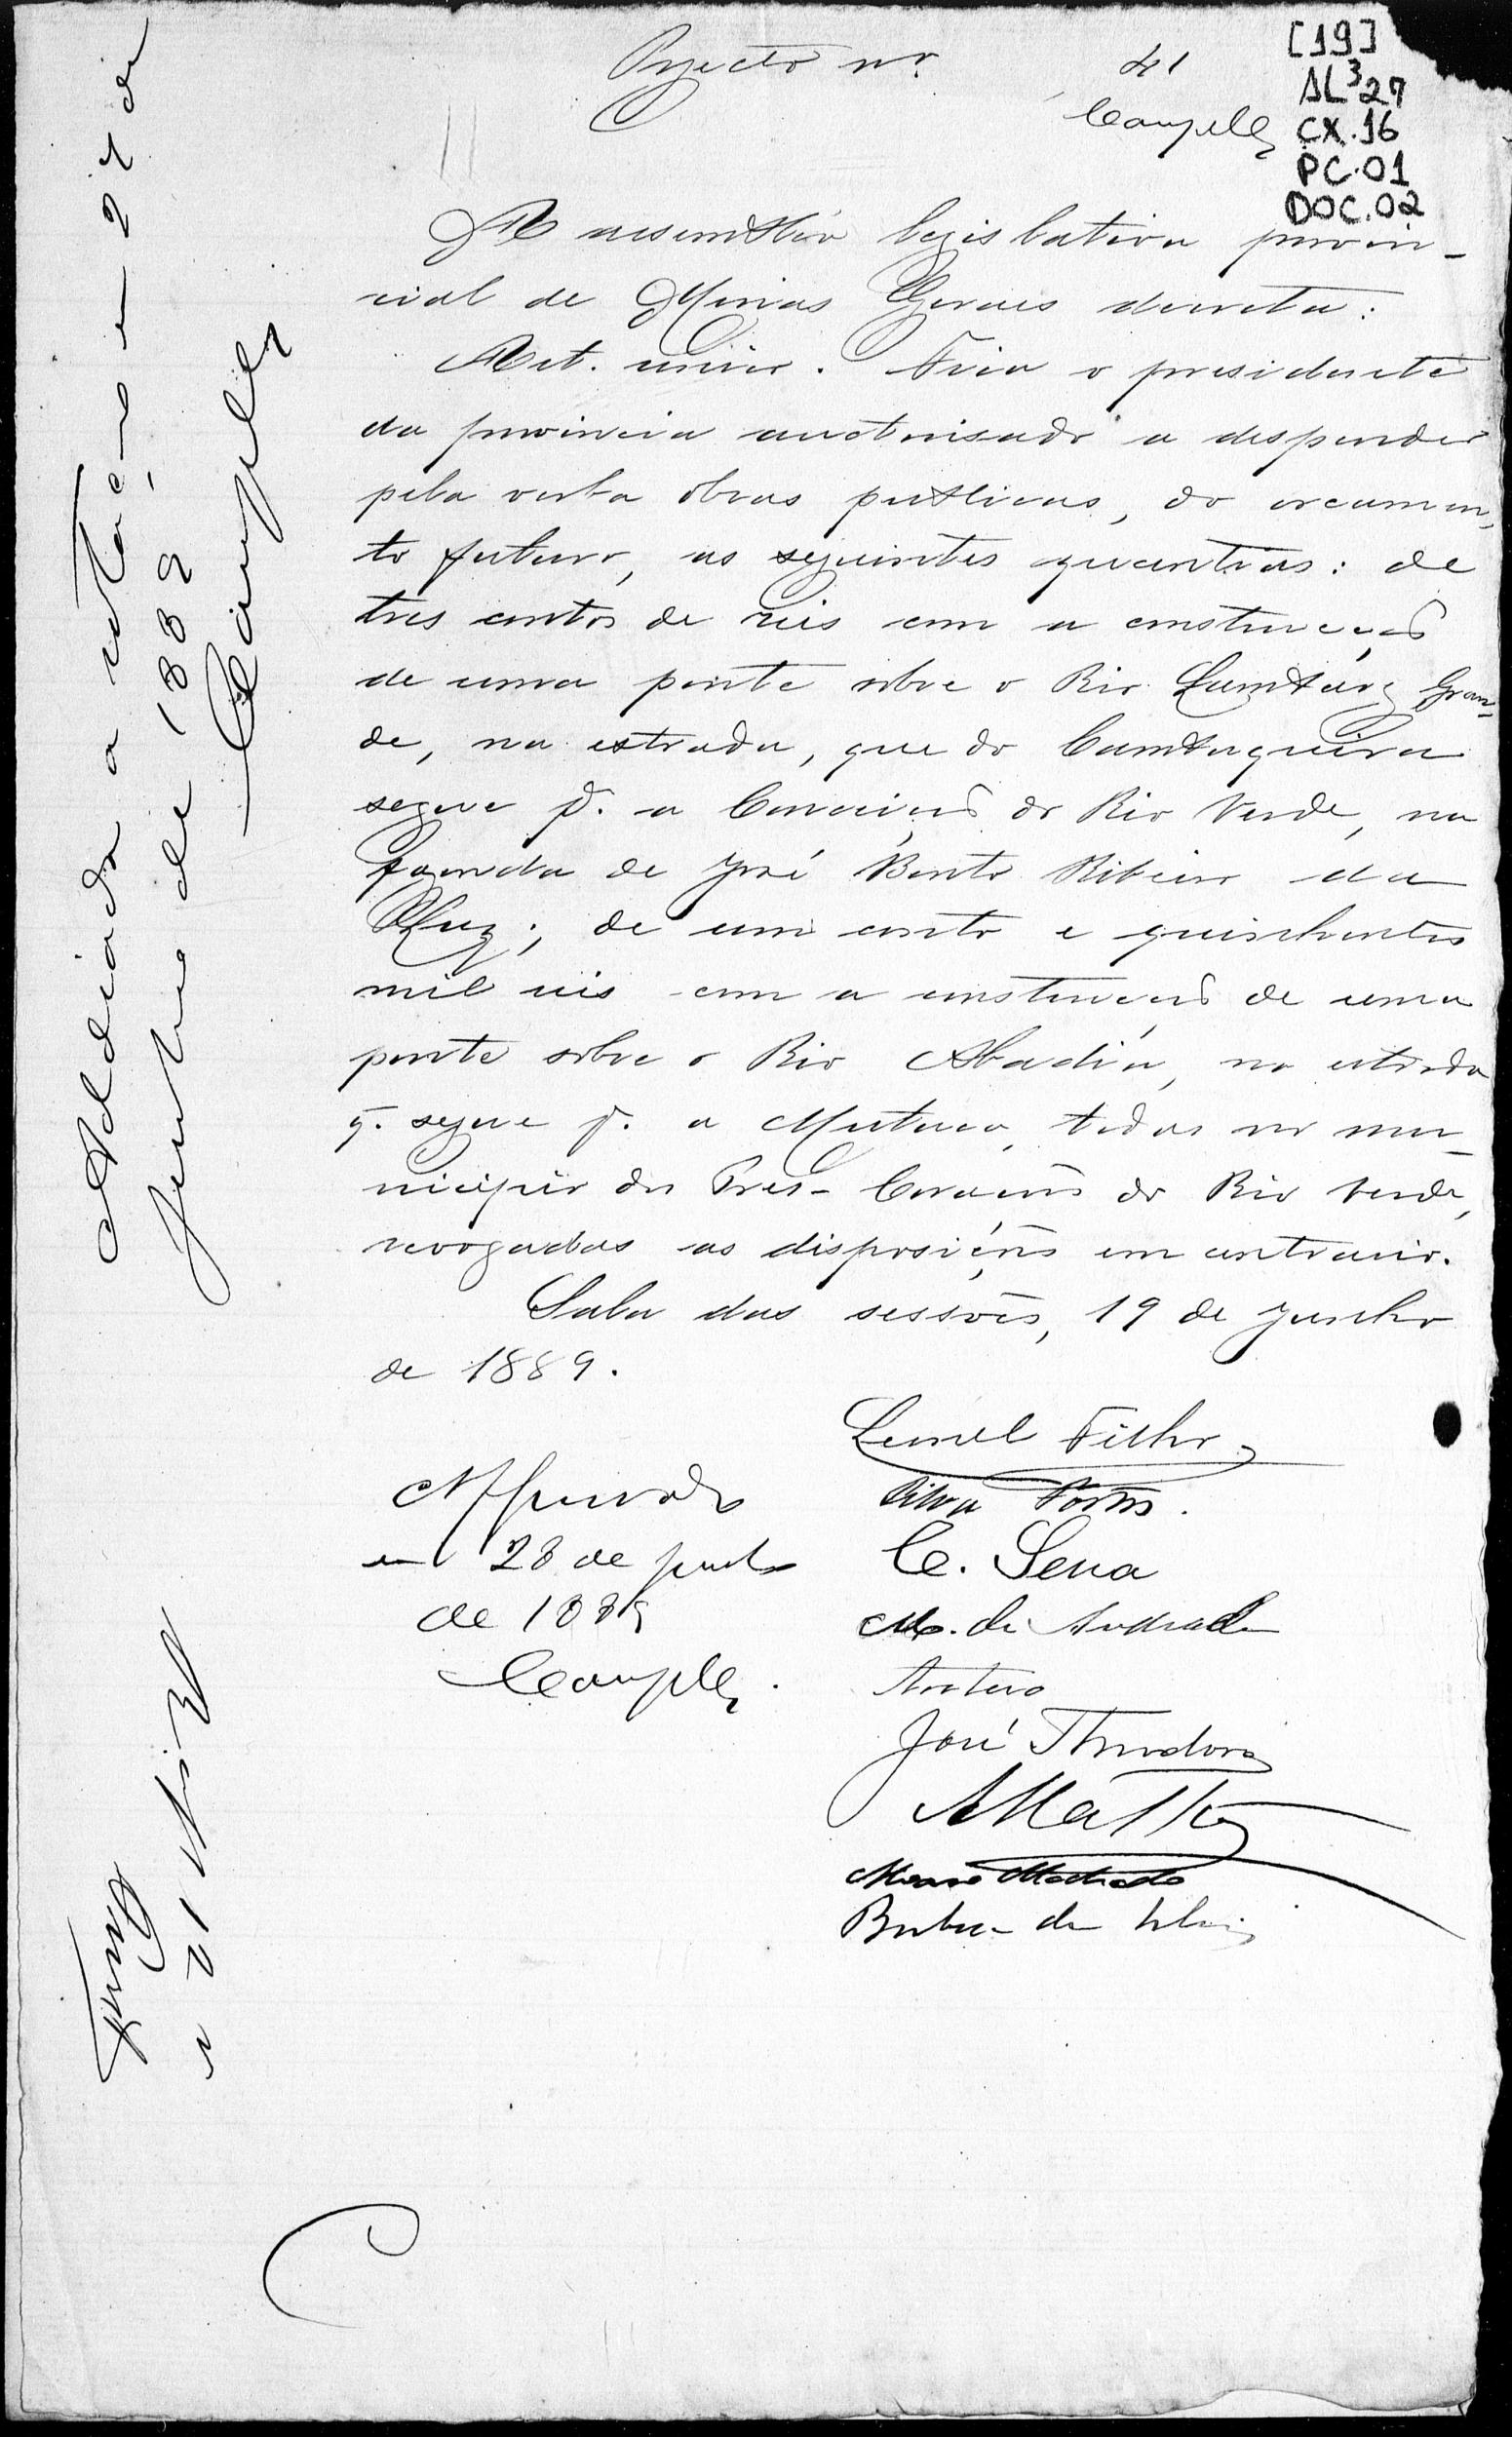 Projecto nº. 41
Campello
[19]
AL³27
CX.16
PC.01
DOC.02
A assembléa legislativa provin-
cial de Minas Geraes decreta:
Art. unico. Fica o presidente
da provincia auctorisado a despender
pela verba obras publicas, do orçamen-
to futuro, as seguintes quantias: de
tres contos de reis com a construcção
de uma ponte sobre o Rio Lambary Gran-
de, na estrada, que do Cambuquira
segue p. a Conceição do Rio Verde, na
fazenda de José Bento Ribeiro da
Luz; de um conto e quinhentos
mil reis com a construcção de uma
ponte sobre o Rio Abadia, na estrada
q. segue p. a Mutuca, todas no mu-
nicipio dos Tres-Corações do Rio Verde,
revogadas as disposições em contrario.
Sala das sessões, 19 de Junho
de 1889.
Leonel Filho
Silva Fortes.
C. Sena
M. de Andrade
Antero
José Theodoro
AMattos
Machado
Approvado
em 28 de junho
de 1889
Campello.
Addiado a votação em 27 de
Junho de 1889
Campello